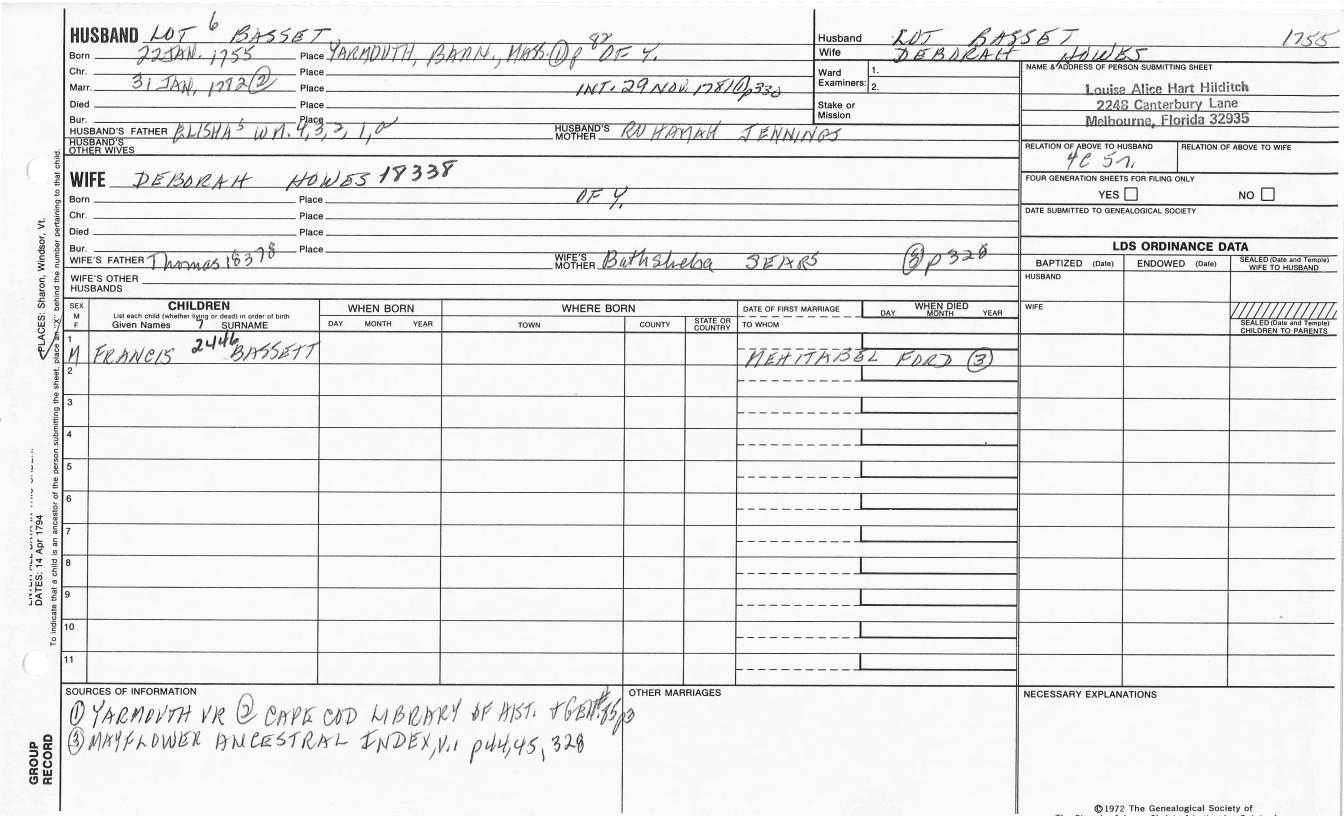 HUSBAND LOT 6 BASSET
Born 22 JAN. 1755 Place YARMOUTH, BARN., MASS. ① p 82 OF Y.
Chr. Place
Marr. 31 JAN, 1782 ② Place INT. 29 NOV. 1781 ① p330
Died Place
Bur. Place
HUSBAND'S FATHER ELISHA 5 WM. 4, 3, 2, 1, HUSBAND'S MOTHER RUHAMAH JENNINGS
HUSBAND'S OTHER WIVES
WIFE DEBORAH HOWES 18338
Born Place OF Y.
Chr. Place
Died Place
Bur. Place
WIFE'S FATHER Thomas 18378 WIFE'S MOTHER Bathsheba SEARS ③ p328
WIFE'S OTHER HUSBANDS
Husband LOT BASSET 1755
Wife DEBORAH HOWES
Ward Examiners: 1.
2.
Stake or Mission
NAME & ADDRESS OF PERSON SUBMITTING SHEET
Louise Alice Hart Hilditch
2248 Canterbury Lane
Melbourne, Florida 32935
RELATION OF ABOVE TO HUSBAND RELATION OF ABOVE TO WIFE
4C 5r.
FOUR GENERATION SHEETS FOR FILING ONLY
YES NO
DATE SUBMITTED TO GENEALOGICAL SOCIETY
LDS ORDINANCE DATA
BAPTIZED (Date) ENDOWED (Date) SEALED (Date and Temple) WIFE TO HUSBAND
HUSBAND
WIFE
SEALED (Date and Temple) CHILDREN TO PARENTS
SEX M F
CHILDREN
List each child (whether living or dead) in order of birth
Given Names 7 SURNAME
WHEN BORN
DAY MONTH YEAR
WHERE BORN
TOWN COUNTY STATE OR COUNTRY
DATE OF FIRST MARRIAGE
TO WHOM
WHEN DIED
DAY MONTH YEAR
1
M FRANCIS 2446 BASSETT MEHITABEL FORD ③
2
3
4
5
6
7
8
9
10
11
SOURCES OF INFORMATION
① YARMOUTH VR ② CAPE COD LIBRARY OF HIST. & GEN. #85 p3
③ MAYFLOWER ANCESTRAL INDEX, V.1 p44,45, 328
OTHER MARRIAGES
NECESSARY EXPLANATIONS
©1972 The Genealogical Society of
PLACES: Sharon, Windsor, Vt.
DATES: 14 Apr 1794
To indicate that a child is an ancestor of the person submitting the sheet, place an "X" behind the number pertaining to that child.
GROUP RECORD